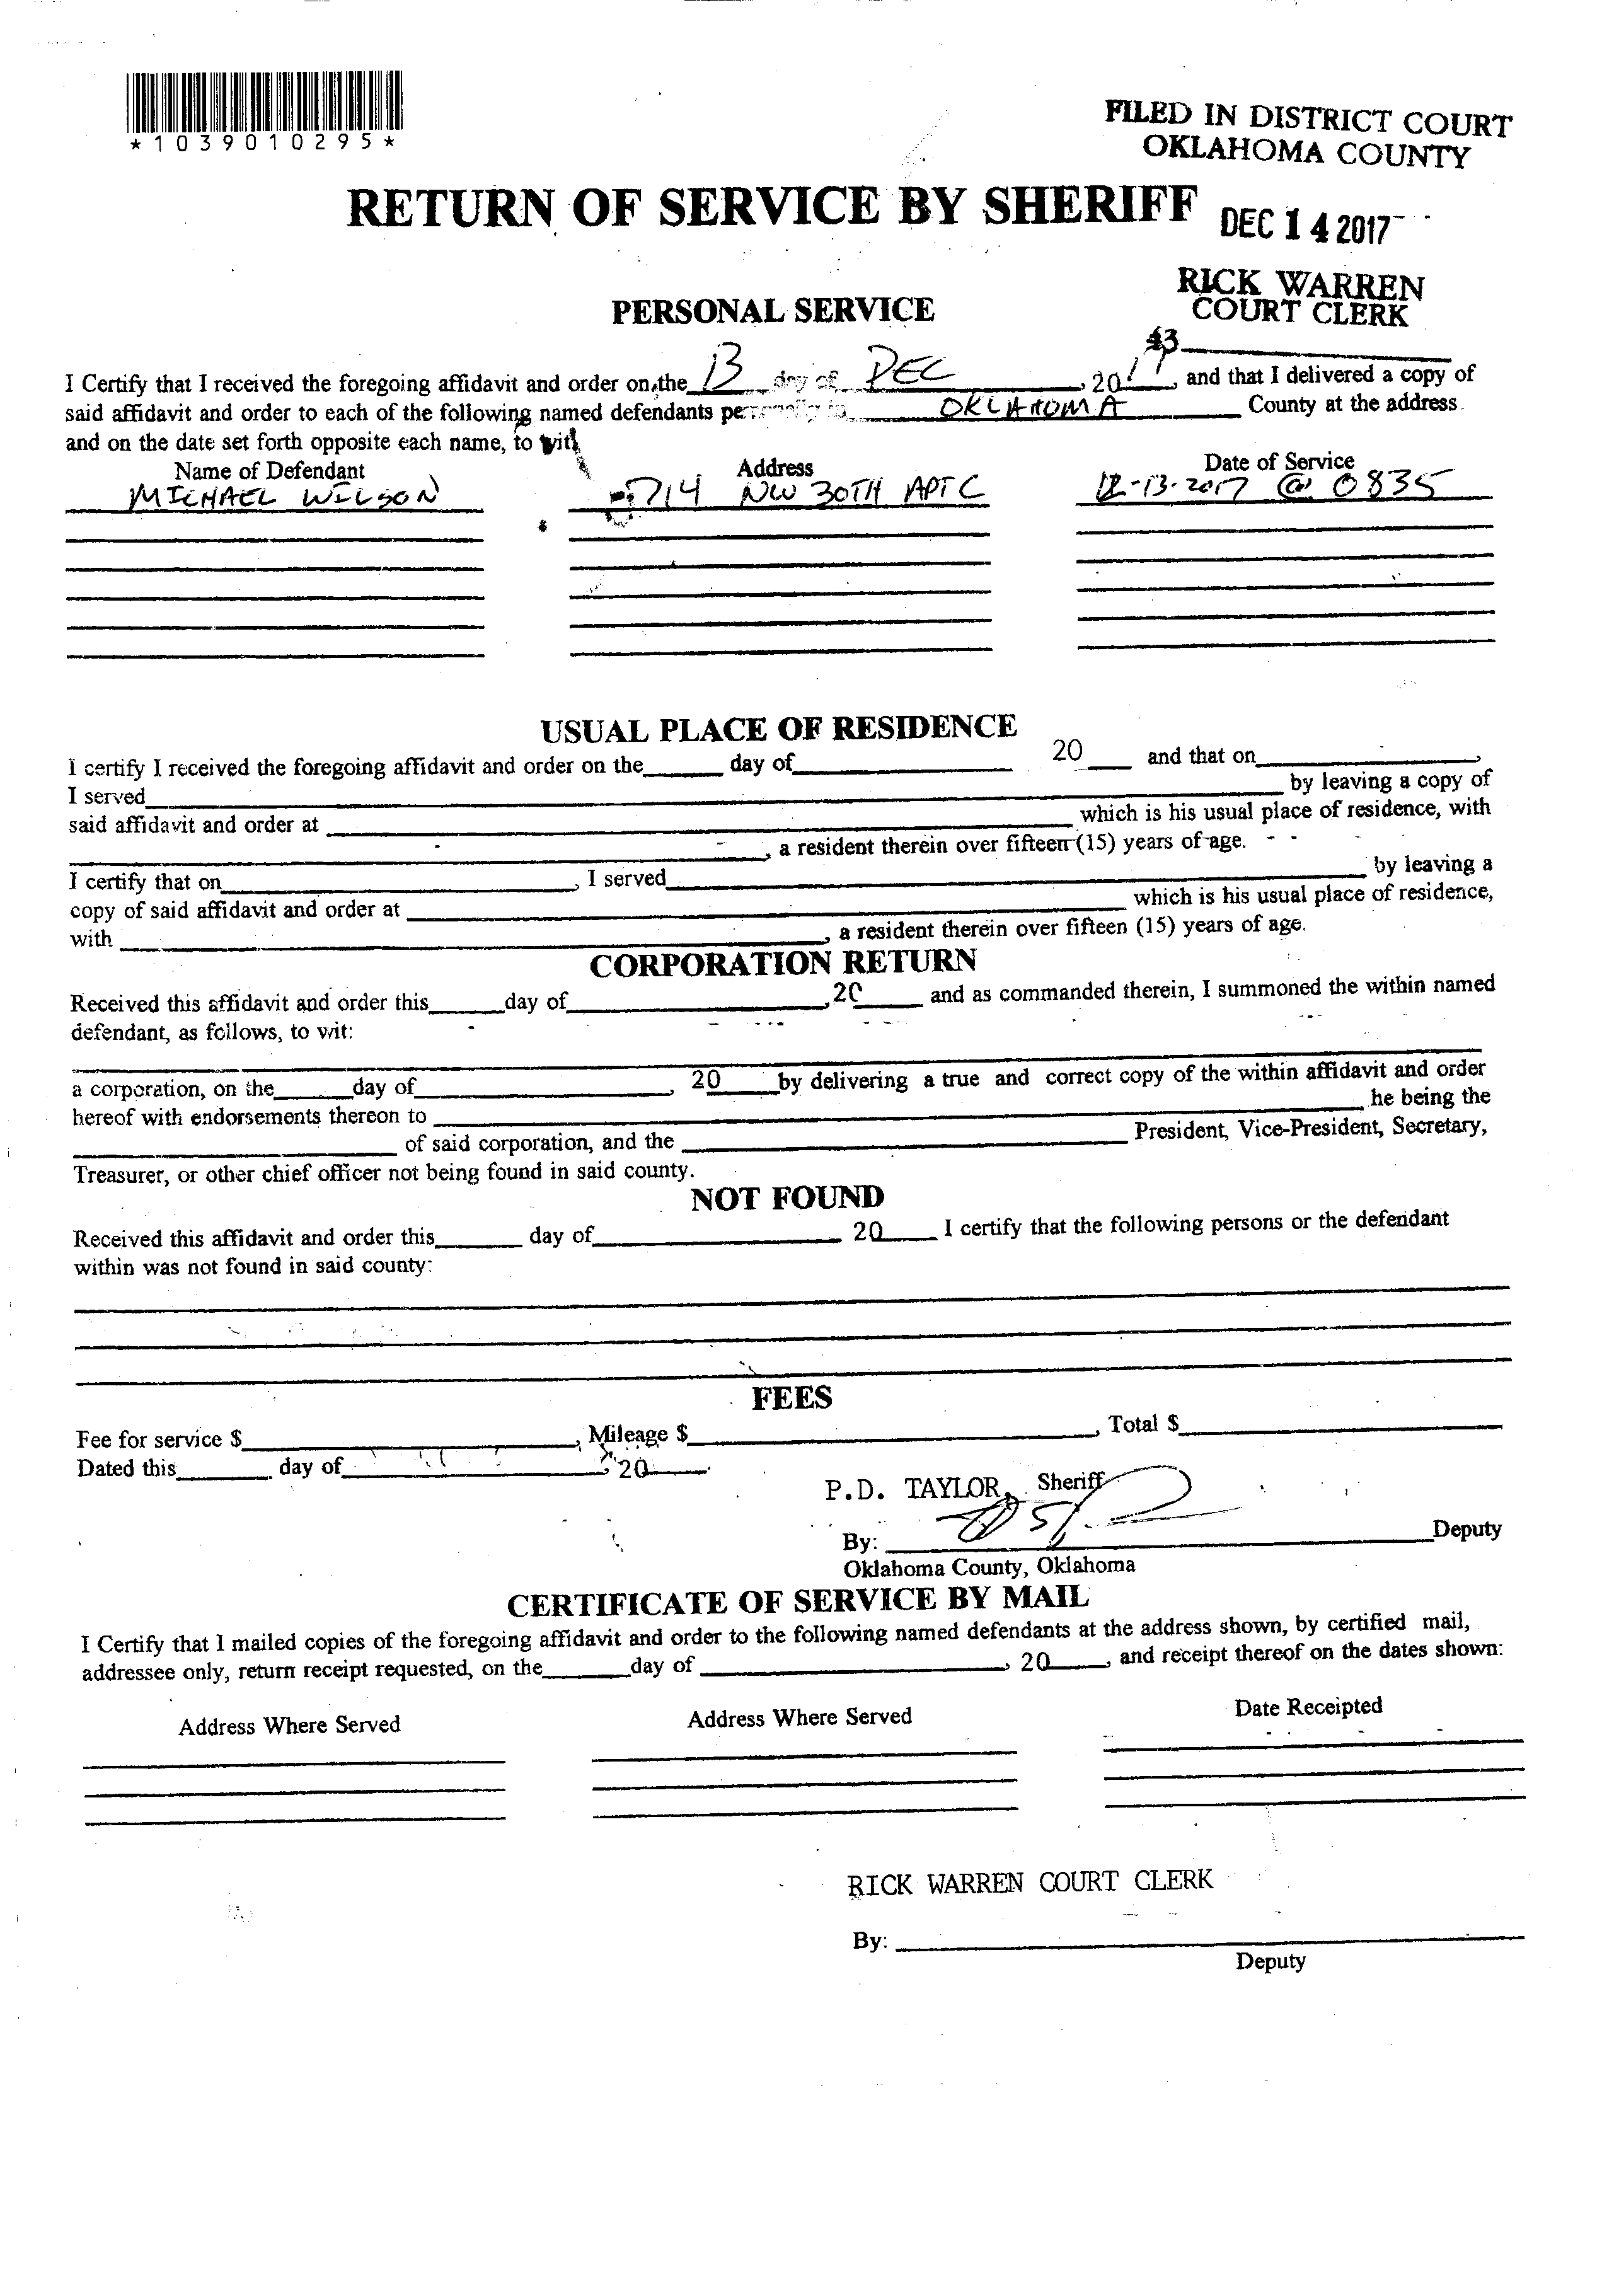 *1039010295*
FILED IN DISTRICT COURT
OKLAHOMA COUNTY
RETURN OF SERVICE BY SHERIFF
DEC 14 2017
RICK WARREN
COURT CLERK
PERSONAL SERVICE
43
I Certify that I received the foregoing affidavit and order on the 13 day of DEC, 2017, and that I delivered a copy of
said affidavit and order to each of the following named defendants personally in OKLAHOMA County at the address
and on the date set forth opposite each name, to wit
Name of Defendant Address Date of Service
MICHAEL WILSON 714 NW 30TH APT C 12-13-2017 @ 0835
USUAL PLACE OF RESIDENCE
I certify I received the foregoing affidavit and order on the ______ day of ______ 20____ and that on ______,
I served ______ by leaving a copy of
said affidavit and order at ______ which is his usual place of residence, with
______, a resident therein over fifteen (15) years of age.
I certify that on ______, I served ______ by leaving a
copy of said affidavit and order at ______ which is his usual place of residence,
with ______, a resident therein over fifteen (15) years of age.
CORPORATION RETURN
Received this affidavit and order this ______ day of ______, 20____ and as commanded therein, I summoned the within named
defendant, as follows, to wit:
a corporation, on the ______ day of ______, 20____ by delivering a true and correct copy of the within affidavit and order
hereof with endorsements thereon to ______ he being the
______ of said corporation, and the ______ President, Vice-President, Secretary,
Treasurer, or other chief officer not being found in said county.
NOT FOUND
Received this affidavit and order this ______ day of ______ 20____ I certify that the following persons or the defendant
within was not found in said county:
FEES
Fee for service $______, Mileage $______, Total $______
Dated this ______ day of ______ 20____.
P.D. TAYLOR, Sheriff
By: ______ Deputy
Oklahoma County, Oklahoma
CERTIFICATE OF SERVICE BY MAIL
I Certify that I mailed copies of the foregoing affidavit and order to the following named defendants at the address shown, by certified mail,
addressee only, return receipt requested, on the ______ day of ______, 20____, and receipt thereof on the dates shown:
Address Where Served Address Where Served Date Receipted
RICK WARREN COURT CLERK
By: ______
Deputy